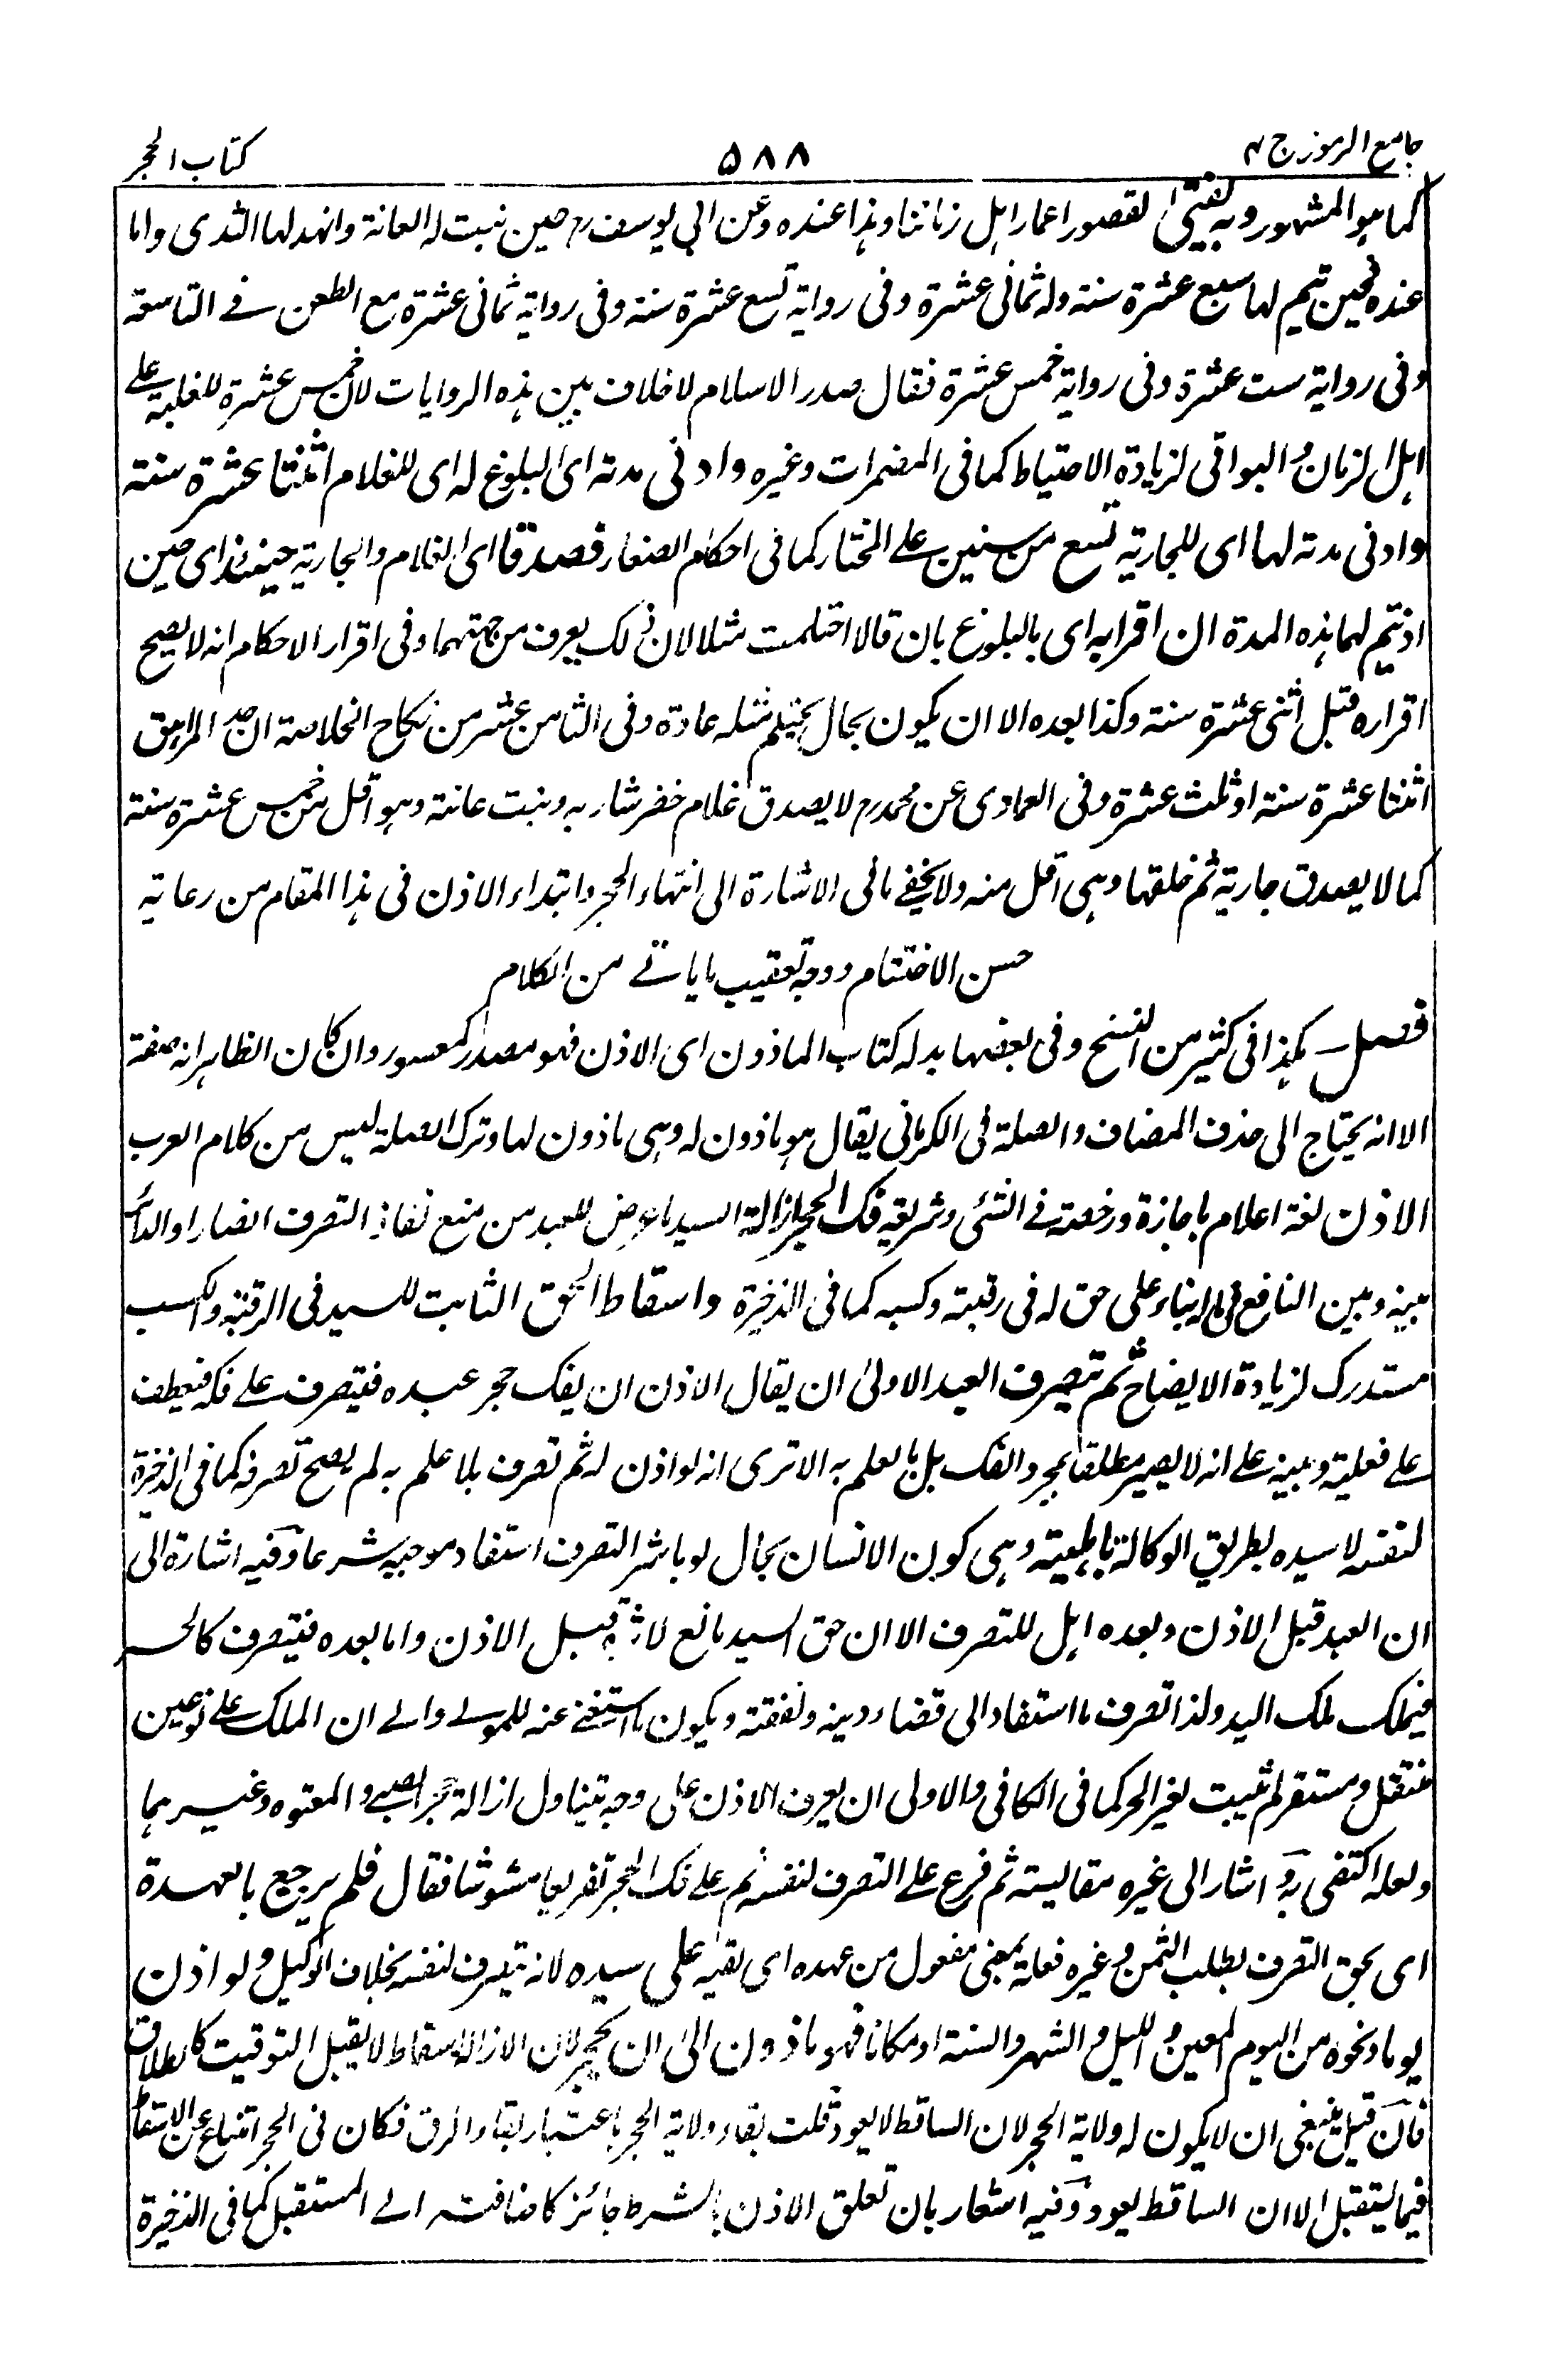 جامع الرموز ج ۳
۵۸۸
كتاب الحجر
كما هو المشهور وبه يفتى لقصور اعمار اهل زماننا وهذا عنده وعن ابي يوسف رح حين نبت له العانة وانهد لها الثدى واما
عنده فحين تيم لها سبع عشرة سنة وله ثمانى عشرة وفى رواية تسع عشرة سنة وفى رواية ثمانى عشرة مع الطعن فے التاسعة
وفى رواية ست عشرة وفى رواية خمس عشرة فقال صدر الاسلام لا خلاف بين هذه الروايات لان خمس عشرة للغلبة على
اهل الزمان والبواقى لزيادة الاحتياط كما فى المضمرات وغيره وادنى مدته اى البلوغ له اى للغلام اثنتا عشرة سنة
وادنى مدته لها اى للجارية تسع من سنين على المختار كما فى احكام الصغار فصدقا اى الغلام والجارية حينئذ اى حين
اذ يتم لهما هذه المدة ان اقرا به اى بالبلوغ بان قالا احتلمت مثلا لان ذلك يعرف من جهتهما وفى اقرار الاحكام انه لا يصح
اقراره قبل اثنى عشرة سنة وكذا بعده الا ان يكون بحال يحتلم مثله عادة وفى الثامن عشر من نكاح الخلاصة ان حد المراهق
اثنتا عشرة سنة او ثلث عشرة وفى العمادى عن محمد رح لا يصدق غلام خضر شاربه ونبت عانته وهو اقل من خمس عشرة سنة
كما لا يصدق جارية ثم خلقها وهى اقل منه ولا يخفى مافى الاشارة الى انتهاء الحجر وابتداء الاذن فى هذا المقام من رعاية
حسن الاختتام ووجه تعقيب ما ياتى من الكلام
فصل هكذا فى كثير من النسخ وفى بعضها بدله كتاب الماذون اى الاذن فهو مصدر كمعسور وان كان الظاهر انه صفة
الا انه يحتاج الى حذف المضاف والصلة فى الكرمانى يقال هو ماذون له وهى ماذون لها وترك الصلة ليس من كلام العرب
الاذن لغة اعلام باجازة ورخصة فى الشئى وشريعة فك الحجر ازالة السيد ما عرض للعبد من منع نفاذ التصرف الضار او الدائر
بينه وبين النافع فى ماله بناء على حق له فى رقبته وكسبه كما فى الذخيرة واسقاط الحق الثابت للسيد فى الرقبة والكسب
مستدرك لزيادة الايضاح ثم يتصرف العبد الاولى ان يقال الاذن ان يفك حجر عبده فيتصرف على فكه فيعطف
على فعلية وتنبيه على انه لا يصير مطلقا بمجرد الفك بل بالعلم به الا ترى انه لو اذن له ثم تصرف بلا علم به لم يصح تصرفه كما فى الذخيرة
لنفسه لا سيده بطريق الوكالة باهليته وهى كون الانسان بحال لو باشر التصرف استفاد موجبه شرعا وفيه اشارة الى
ان العبد قبل الاذن وبعده اهل للتصرف الا ان حق السيد مانع لاثره قبل الاذن واما بعده فيتصرف كالحر
فيملك ملك اليد ولذا تصرف ما استفاد الى قضاء دينه ونفقته ويكون ما استغنى عنه للمولے والے ان الملك على نوعين
منتقل ومستقر لم يثبت لغير الحر كما فى الكافى والاولى ان يعرف الاذن على وجه يتناول ازالة حجر الصبى والمعتوه وغيرهما
ولعله اكتفى به واشار الى غيره مقايسته ثم فرع على التصرف لنفسه ثم على فك الحجر تفريعا مشوشا فقال فلم يرجع بالعهدة
اى بحق التصرف بطلب الثمن وغيره فعلة بمعنى مفعول من عهده اى لقيه على سيده لانه يتصرف لنفسه بخلاف الوكيل ولو اذن
يوما ونحوه من اليوم المعين والليل والشهر والسنة او مكانا فهو ماذون الى ان يحجر لان الازالة اسقاط لا يقبل التوقيت كالطلاق
فان قيل ينبغى ان لا يكون له ولاية الحجر لان الساقط لا يعود قلت بقاء ولاية الحجر باعتبار بقاء الرق فكان فى الحجر امتناع عن الاسقاط
فيما يستقبل الا ان الساقط يعود وفيه اشعار بان تعلق الاذن بالشرط جائز كاضافته الے المستقبل كما فى الذخيرة